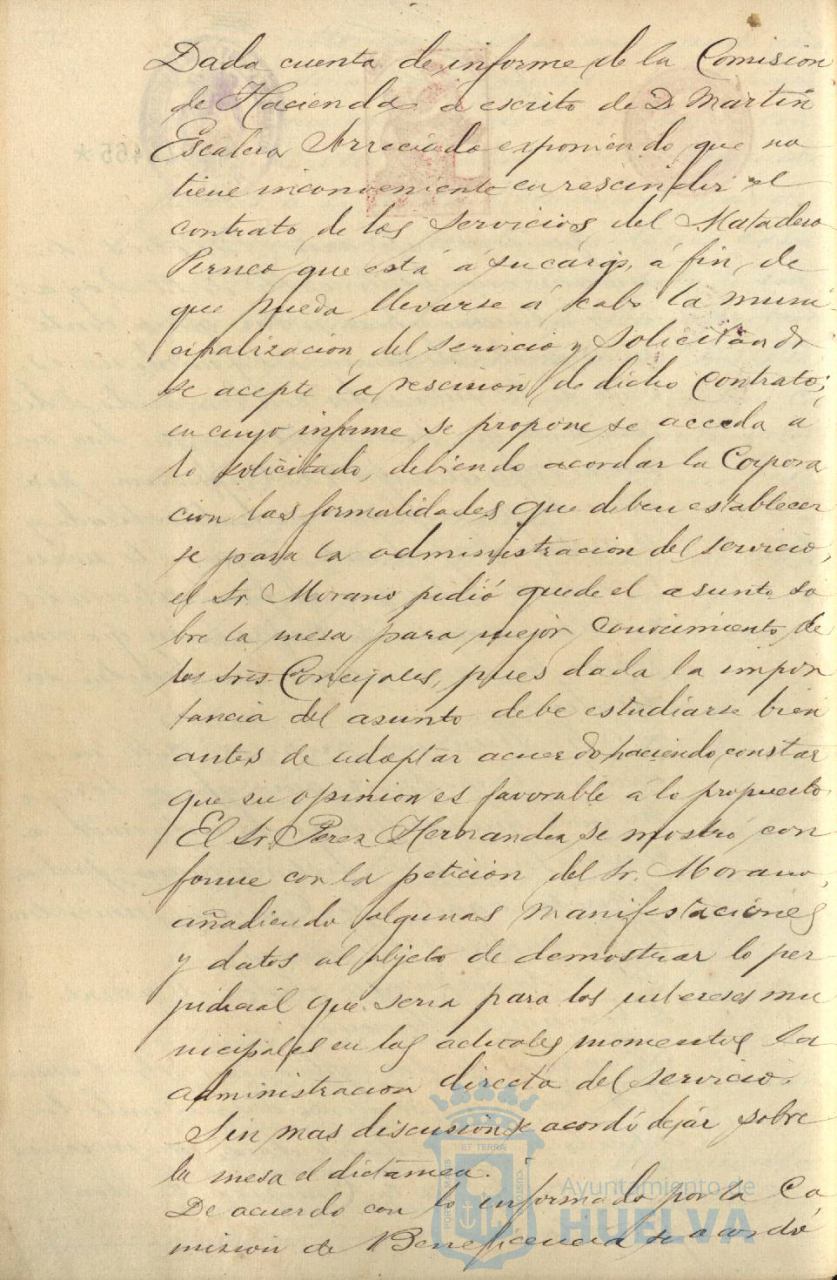 Dada cuenta de informe de la Comision
de Hacienda a escrito de D. Martin
Escalera Arreciado exponiendo que no
tiene inconveniente en rescindir el
contrato de los servicios del Matadero
que está á su cargo, á fin de
que pueda llevarse á cabo la muni
cipalización del servicio y solicitando
se acepte la rescision de dicho contrato;
en cuyo informe se propone se acceda á
lo solicitado, debiendo acordar la Corpora
cion las formalidades que deben establecer
se para la administracion del servicio,
el Sr. Morano pidió quede el asunto so
bre la mesa para mejor conocimiento de
los Sres. Concejales, pues dada la impor
tancia del asunto debe estudiarse bien
antes de adoptar acuerdo haciendo constar
que su opinion es favorable á lo propuesto
El Sr. Perez Hernandez se mostro con
forme con la petición del Sr. Morano,
añadiendo algunas manifestaciones
y datos al objeto de demostrar lo per
judicial que seria para los intereses mu
nicipales en los actuales momentos la
administracion directa del servicio.
Sin mas discusion se acordó dejar sobre
la mesa el dictamen.
De acuerdo con lo informado por la Co
mision de Beneficencia se acordó
ET TERRÆ
Ayuntamiento de
HUELVA